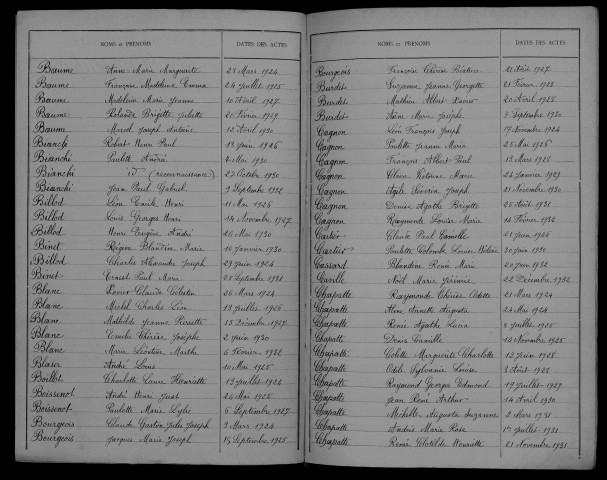 NOMS et PRÉNOMS DATES DES ACTES
Baume Anne Marie Marguerite 28 Mars 1924
Baume Françoise Madeleine Emma 24 Juillet 1925
Baume Madeleine Marie Jeanne 10 Août 1927
Baume Rolande Brigitte Juliette 20 Février 1929
Baume Marcel Joseph Antoine 12 Avril 1930
Bianchi Robert Henri Paul 13 Juin 1926
Bianchi Paulette Andrée 4 Mai 1930
Bianchi d° (reconnaissance) 27 Octobre 1930
Bianchi Jean Paul Gabriel 9 Septembre 1932
Billod Henri 11 Mai 1926
Billod Louis Georges Henri 14 Novembre 1927
Billod Henri André 26 Mai 1930
Binet Régine Blandine Marie 10 Janvier 1930
Billod Charles Alexandre Joseph 29 Juin 1924
Binet Ernest Paul Marie 28 Septembre 1932
Blanc Xavier Claude 26 Mars 1924
Blanc Michel Charles Léon 13 Juillet 1926
Blanc Mathilde Jeanne Pierrette 15 Décembre 1927
Blanc Camille Thérèse Josèphe 2 Juin 1930
Blanc Marie Léontine Marthe 6 Février 1932
Blaser André Louis 10 Mai 1925
Boillot Charlotte Laure Henriette 13 Juillet 1924
Boissenot André Henri Just 26 Mai 1925
Boissenot Paulette Marie Lydie 6 Septembre 1927
Bourgeois Claude Gaston Jules Joseph 9 Mars 1924
Bourgeois Jacques Marie Joseph 15 Septembre 1925
NOMS et PRÉNOMS DATES DES ACTES
Bourgeois Françoise Thérèse Béatrice 21 Août 1927
Burdet Suzanne Jeanne Georgette 21 Février 1925
Burdet Mathieu Albert Xavier 20 Août 1928
Burdet Anne Marie Josèphe 7 Septembre 1930
Cagnon Léon François Joseph 17 Novembre 1924
Cagnon Paulette Jeanne Marie 25 Mai 1926
Cagnon François Albert Paul 13 Mars 1928
Cagnon Claire Victorine Marie 24 Janvier 1929
Cagnon Agile Séverin Joseph 21 Novembre 1930
Cagnon Denise Agathe Brigitte 25 Août 1931
Cagnon Raymonde Louise Marie 15 Février 1932
Cartier Claude Paul Camille 01 Juin 1926
Cartier Paulette Colombe Louise Hélène 30 Juin 1930
Cassard Blandine Renée Marie 20 Juin 1932
Caville Noël Marie Jérémie 22 Décembre 1932
Chapatte Raymonde Thérèse Odette 21 Mars 1924
Chapatte Aline Annette Augusta 24 Mai 1924
Chapatte Renée Agathe Lucia 8 Juillet 1925
Chapatte Denis Camille 14 Novembre 1925
Chapatte Colette Marguerite Charlotte 12 Juin 1928
Chapatte Odile Sylvanie Louise 8 Août 1928
Chapatte Raymond Georges Edmond 19 Juillet 1929
Chapatte Jean René Arthur 14 Avril 1930
Chapatte Michelle Augusta Suzanne 2 Mars 1931
Chapatte Andrée Marie Rose 1er Juillet 1931
Chapatte Renée Clotilde Henriette 21 Novembre 1931